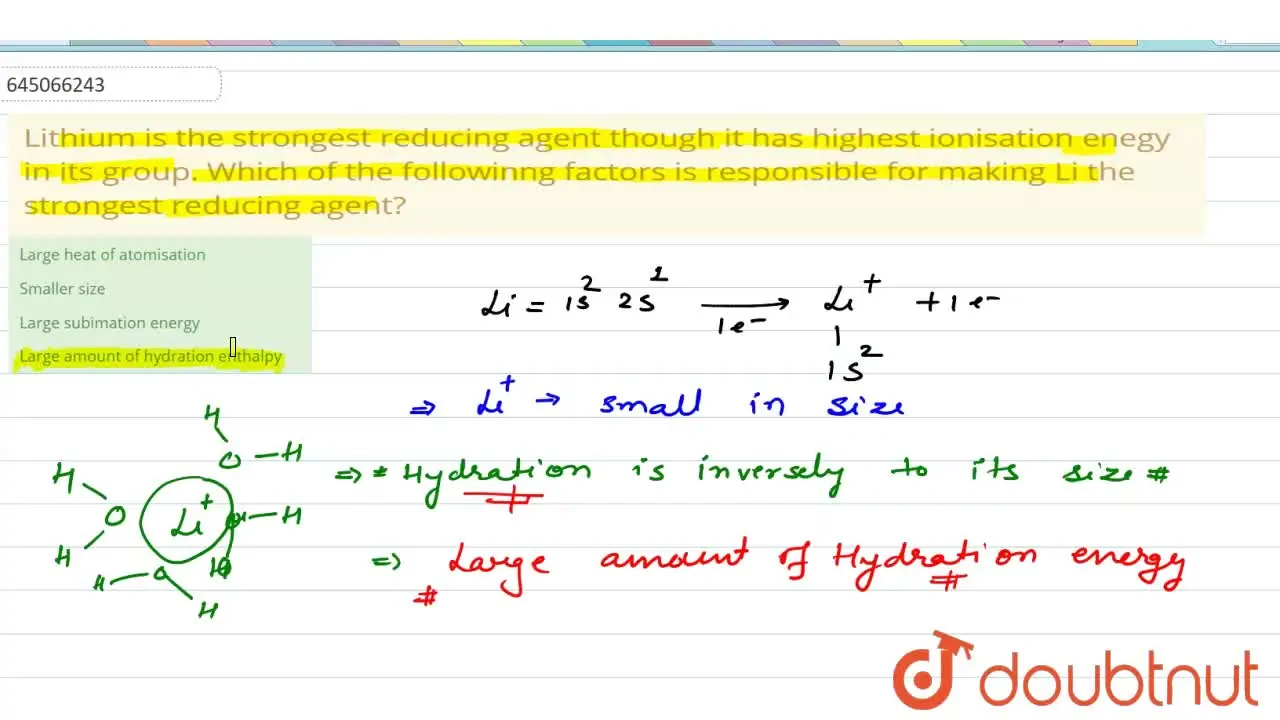 645066243
Lithium is the strongest reducing agent though it has highest ionisation enegy
in its group. Which of the followinng factors is responsible for making Li the
strongest reducing agent?
Large heat of atomisation
Smaller size
Large subimation energy
Large amount of hydration enthalpy
Li = 1s² 2s¹ ⟶ Li⁺ + 1e⁻
1e⁻
1s²
⇒ Li⁺ → small in size
⇒ * Hydration is inversely to its size #
⇒ Large amount of Hydration energy
#
H
O – H
H
O
H
Li⁺
O – H
H
H – O
H
doubtnut